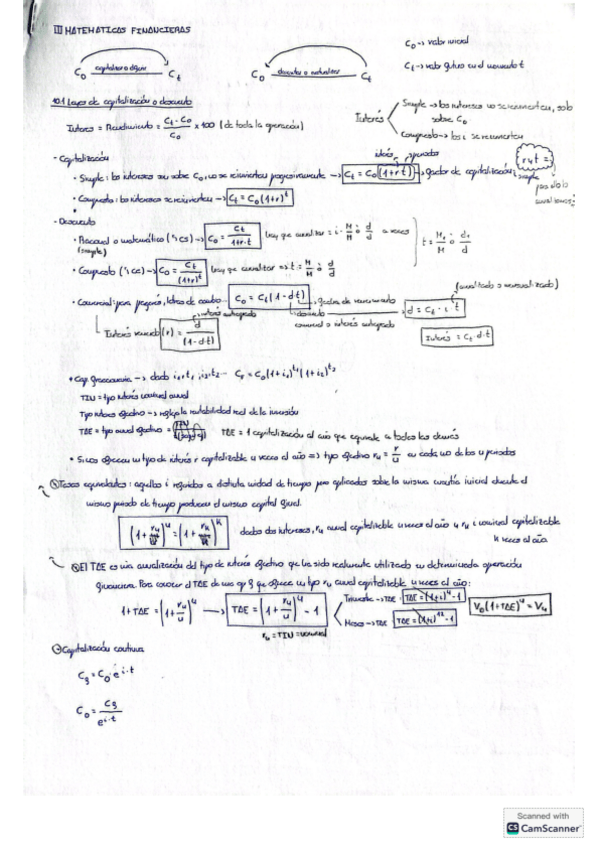 III MATEMATICAS FINANCIERAS
C₀ → valor inicial
C₀ capitalizar o diferir Cₜ
C₀ descontar o actualizar Cₜ
Cₜ → valor futuro en el momento t
10.1 Leyes de capitalización o descuento
Interés = Rendimiento = (Cₜ - C₀)/C₀ × 100 (de toda la operación)
Interés
Simple → los intereses no se reinvierten, solo sobre C₀
Compuesto → los i se reinvierten
· Capitalización
interés periodos
· Simple: los intereses son sobre C₀, no se reinvierten progresivamente → Cₜ = C₀(1+rt) → factor de capitalización simple
r y t =
· Compuesta: los intereses se reinvierten → Cₜ = C₀(1+r)ᵗ
· Descuento
· Racional o matemático (simple) → C₀ = Cₜ/(1+r·t) hay que anualizar = i · M/M ó d/d a veces
t = M/M ó d/d
· Compuesto → C₀ = Cₜ/(1+r)ᵗ hay que anualizar => t = M/M ó d/d
· Comercial para pagarés, letras de cambio → C₀ = Cₜ(1-dt) → factor de descuento
descuento comercial o interés anticipado → d = Cₜ · i · t (anualizado o mensualizado)
interés anticipado
Interés vencido (r) = d/(1-d·t)
Interés = Cₜ·d·t
· Cap. fraccionaria → dado i₁,t₁, i₂,t₂... Cₜ = C₀(1+i₁)^t₁(1+i₂)^t₂
TIN = tipo interés nominal anual
Tipo interés efectivo → refleja la rentabilidad real de la inversión
TAE = tipo anual efectivo = TAE = 1 capitalización al año que equivale a todas las demás
· Si nos ofrecen un tipo de interés r capitalizable n veces al año => tipo efectivo rₙ = r/n en cada uno de los n periodos
Tasas equivalentes: aquellos i referidos a distinta unidad de tiempo pero aplicados sobre la misma cuantía inicial durante el
mismo periodo de tiempo producen el mismo capital final.
(1 + rₙ/n)ⁿ = (1 + rₖ/k)ᵏ dados dos intereses, rₙ anual capitalizable n veces al año y rₖ i nominal capitalizable
k veces al año.
El TAE es una anualización del tipo de interés efectivo que ha sido realmente utilizado en determinada operación
financiera. Para conocer el TAE de una op. f. que ofrece un tipo rₙ anual capitalizable n veces al año:
1+TAE = (1 + rₙ/n)ⁿ → TAE = (1 + rₙ/n)ⁿ - 1
Trimestre → TAE = (1+i)⁴-1
Meses → TAE TAE = (1+i)¹² -1
V₀(1+TAE)ⁿ = Vₙ
rₙ = TIN = nominal
Capitalización continua
Cf = C₀·e^i·t
C₀ = Cf/e^i·t
Scanned with
CS CamScanner